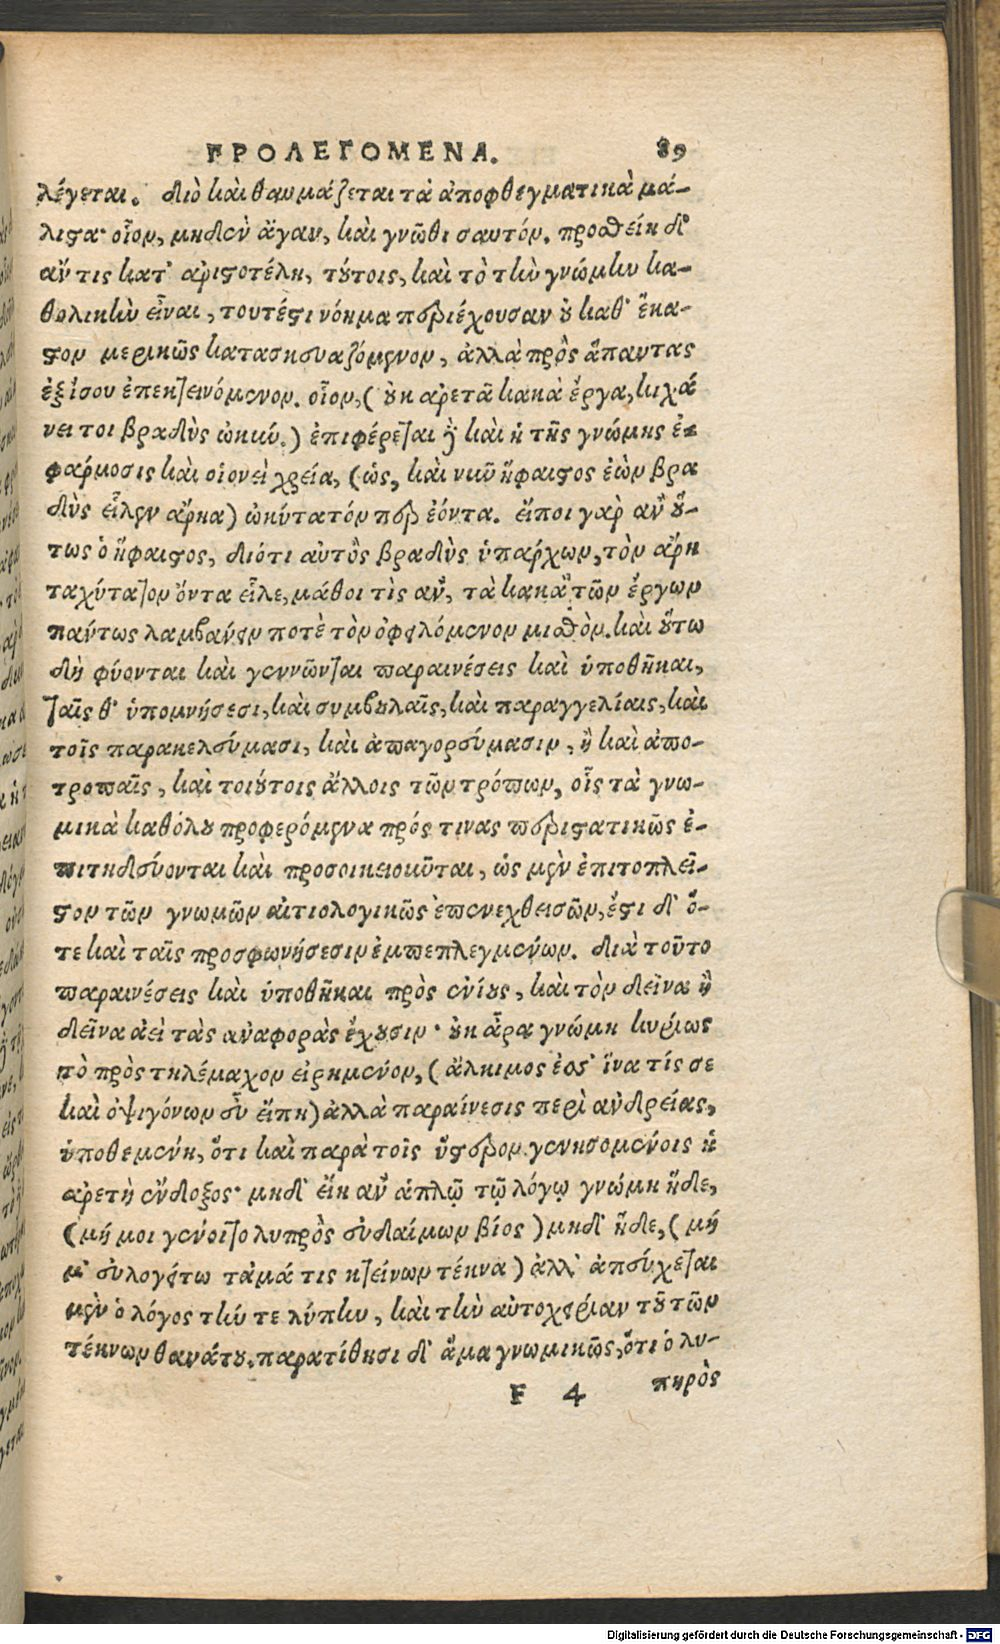 ΠΡΟΛΕΓΟΜΕΝΑ. 89
λέγεται. διὸ καὶ θαυμάζεται τὰ ἀποφθεγματικὰ μά-
λιϛα· οἷον, μηδὲν ἄγαν, καὶ γνῶθι σαυτόν. προσθείη δ'
ἄν τις κατ' ἀριϛοτέλη, τούτοις, καὶ τὸ τὴν γνώμην κα-
θολικὴν εἶναι, τουτέϛι νόημα περιέχουσαν οὐ καθ' ἕκα-
ϛον μερικῶς κατασκευαζόμενον, ἀλλὰ πρὸς ἅπαντας
ἐξίσου ἐπεκτεινόμενον. οἷον, (οὐκ ἀρετᾶ κακὰ ἔργα, κιχά
νει τοι βραδὺς ὠκύν.) ἐπιφέρεται γὰρ καὶ ἡ τῆς γνώμης ἐ-
φάρμοσις καὶ οἱονεὶ χρεία, (ὡς, καὶ νῦν ἥφαιϛος ἐὼν βρα
δὺς εἷλεν ἄρηα) ὠκύτατόν περ ἐόντα. εἴποι γὰρ ἂν οὕ-
τως ὁ ἥφαιϛος, διότι αὐτὸς βραδὺς ὑπάρχων, τὸν ἄρη
ταχύτατον ὄντα εἷλε, μάθοι τὶς ἂν, τὰ κακὰ τῶν ἔργων
πάντως λαμβάνειν ποτὲ τὸν ὀφειλόμενον μισθὸν. καὶ οὕτω
δὴ φύονται καὶ γεννῶνται παραινέσεις καὶ ὑποθῆκαι,
ταῖς θ' ὑπομνήσεσι, καὶ συμβουλαῖς, καὶ παραγγελίαις, καὶ
τοῖς παρακελεύμασι, καὶ ἀπαγορεύμασιν, ἢ καὶ ἀπο-
τροπαῖς, καὶ τοιούτοις ἄλλοις τῶν τρόπων, οἷς τὰ γνω-
μικὰ καθόλου προφερόμενα πρός τινας περιϛατικῶς ἐ-
πιτηδεύονται καὶ προσοικειοῦται, ὡς μὲν ἐπιτοπλεῖ-
ϛον τῶν γνωμῶν αἰτιολογικῶς ἐπενεχθεισῶν, ἔϛι δ' ὅ-
τε καὶ ταῖς προσφωνήσεσιν ἐμπεπλεγμένων. διὰ τοῦτο
παραινέσεις καὶ ὑποθῆκαι πρὸς ἐνίους, καὶ τὸν δεῖνα ἢ
δεῖνα ἀεὶ τὰς ἀναφορὰς ἔχουσιν· οὐκ ἄρα γνώμη κυρίως
τὸ πρὸς τηλέμαχον εἰρημένον, (ἄλκιμος ἔσσ' ἵνα τίς σε
καὶ ὀψιγόνων εὖ εἴπη) ἀλλὰ παραίνεσις περὶ ἀνδρείας,
ὑποθεμένη, ὅτι καὶ παρὰ τοῖς ὕϛερον γενησομένοις ἡ
ἀρετὴ ἔνδοξος· μηδ' εἴη ἂν ἁπλῷ τῷ λόγῳ γνώμη ἥδε,
(μή μοι γένοιτο λυπρὸς εὐδαίμων βίος) μηδ' ἥδε, (μή
μ' εὐλογείτω τἀμά τις κτείνων τέκνα) ἀλλ' ἀπεύχεται
μὲν ὁ λόγος τήν τε λύπην, καὶ τὴν αὐτοχειρίαν τοῦ τῶν
τέκνων θανάτου. παρατίθησι δ' ἅμα γνωμικῶς, ὅτι ὁ λυ-
F 4 πηρὸς
Digitalisierung gefördert durch die Deutsche Forschungsgemeinschaft - DFG